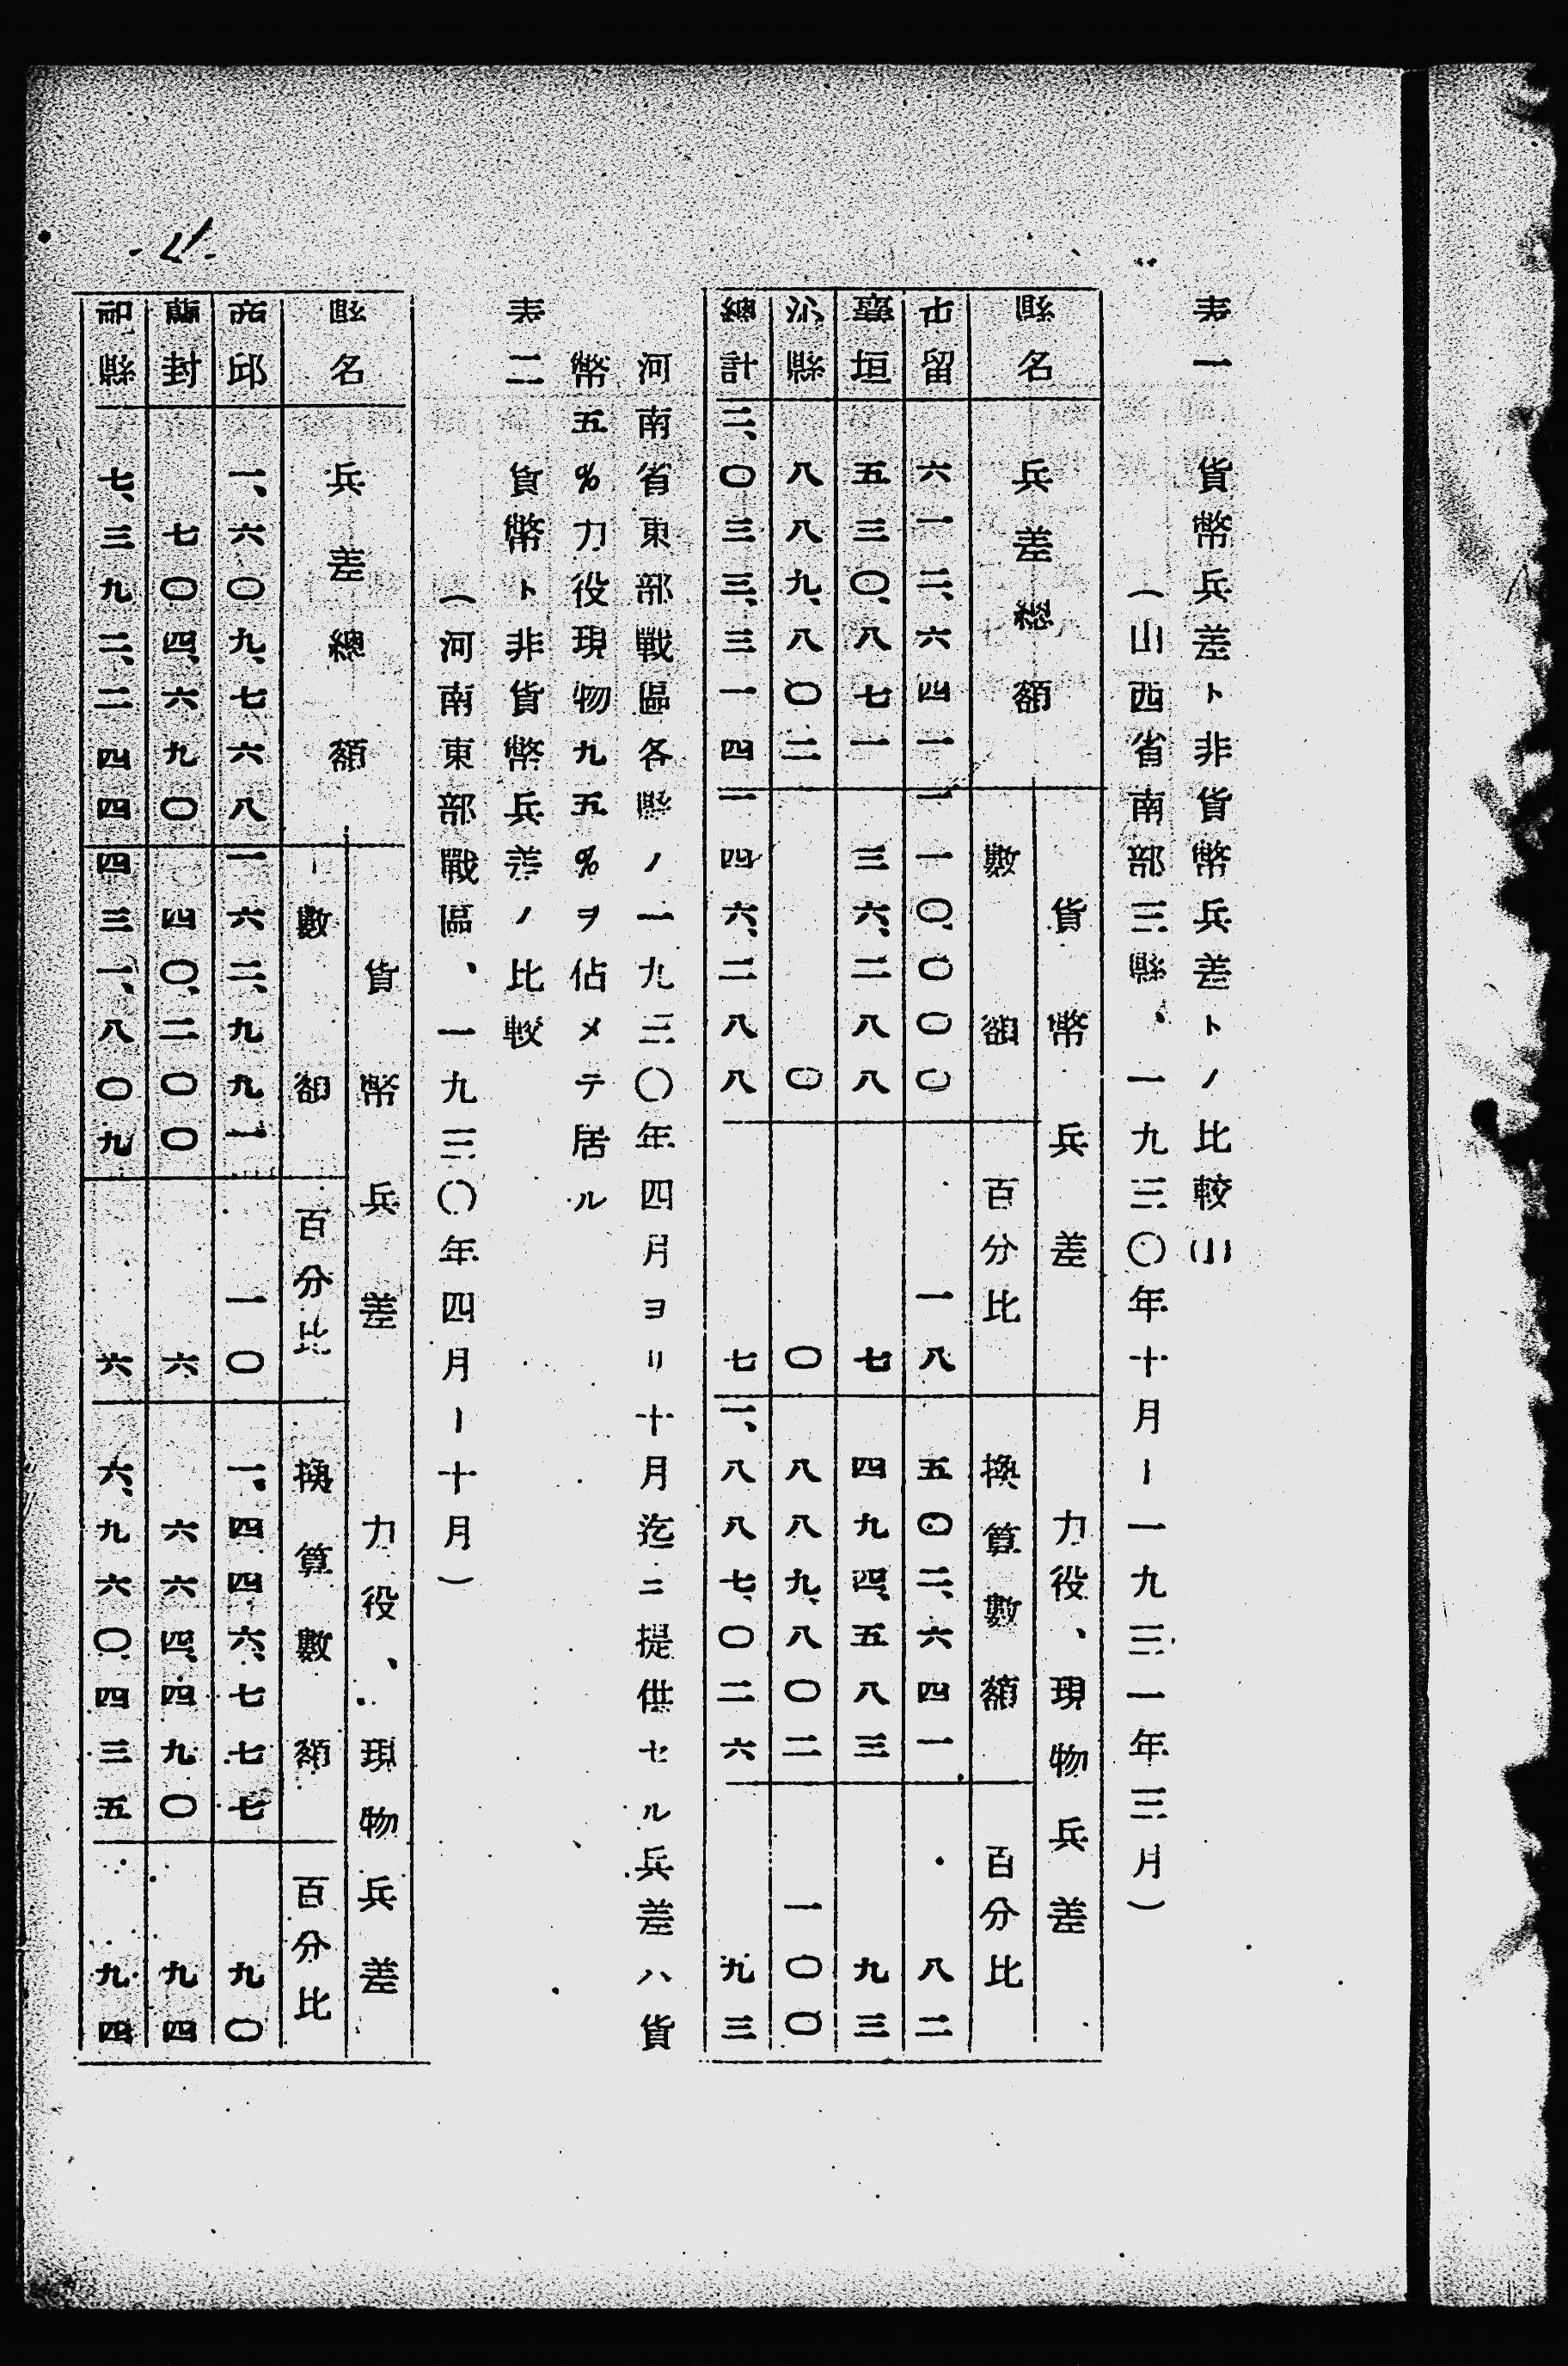 表一　貨幣兵差ト非貨幣兵差トノ比較(1)
（山西省南部三縣、一九三〇年十月ー一九三一年三月）
貨幣兵差　力役、現物兵差
縣名　兵差總額　數額　百分比　換算數額　百分比
屯留　六一二、六四一　一一〇、〇〇〇　一八　五〇二、六四一　八二
襄垣　五三〇、八七一　三六、二八八　七　四九四、五八三　九三
沁縣　八八九、八〇二　〇　〇　八八九、八〇二　一〇〇
總計　二、〇三三、三一四　一四六、二八八　七　一、八八七、〇二六　九三
河南省東部戰區各縣ノ一九三〇年四月ヨリ十月迄ニ提供セル兵差ハ貨
幣五%力役現物九五%ヲ佔メテ居ル
表二　貨幣ト非貨幣兵差ノ比較
（河南東部戰區、一九三〇年四月ー十月）
貨幣兵差　力役、現物兵差
縣名　兵差總額　數額　百分比　換算數額　百分比
商邱　一、六〇九、七六八　一六二、九九一　一〇　一、四四六、七七七　九〇
蘭封　七〇四、六九〇　四〇、二〇〇　六　六六四、四九〇　九四
杞縣　七、三九二、二四四　四三一、八〇九　六　六、九六〇、四三五　九四